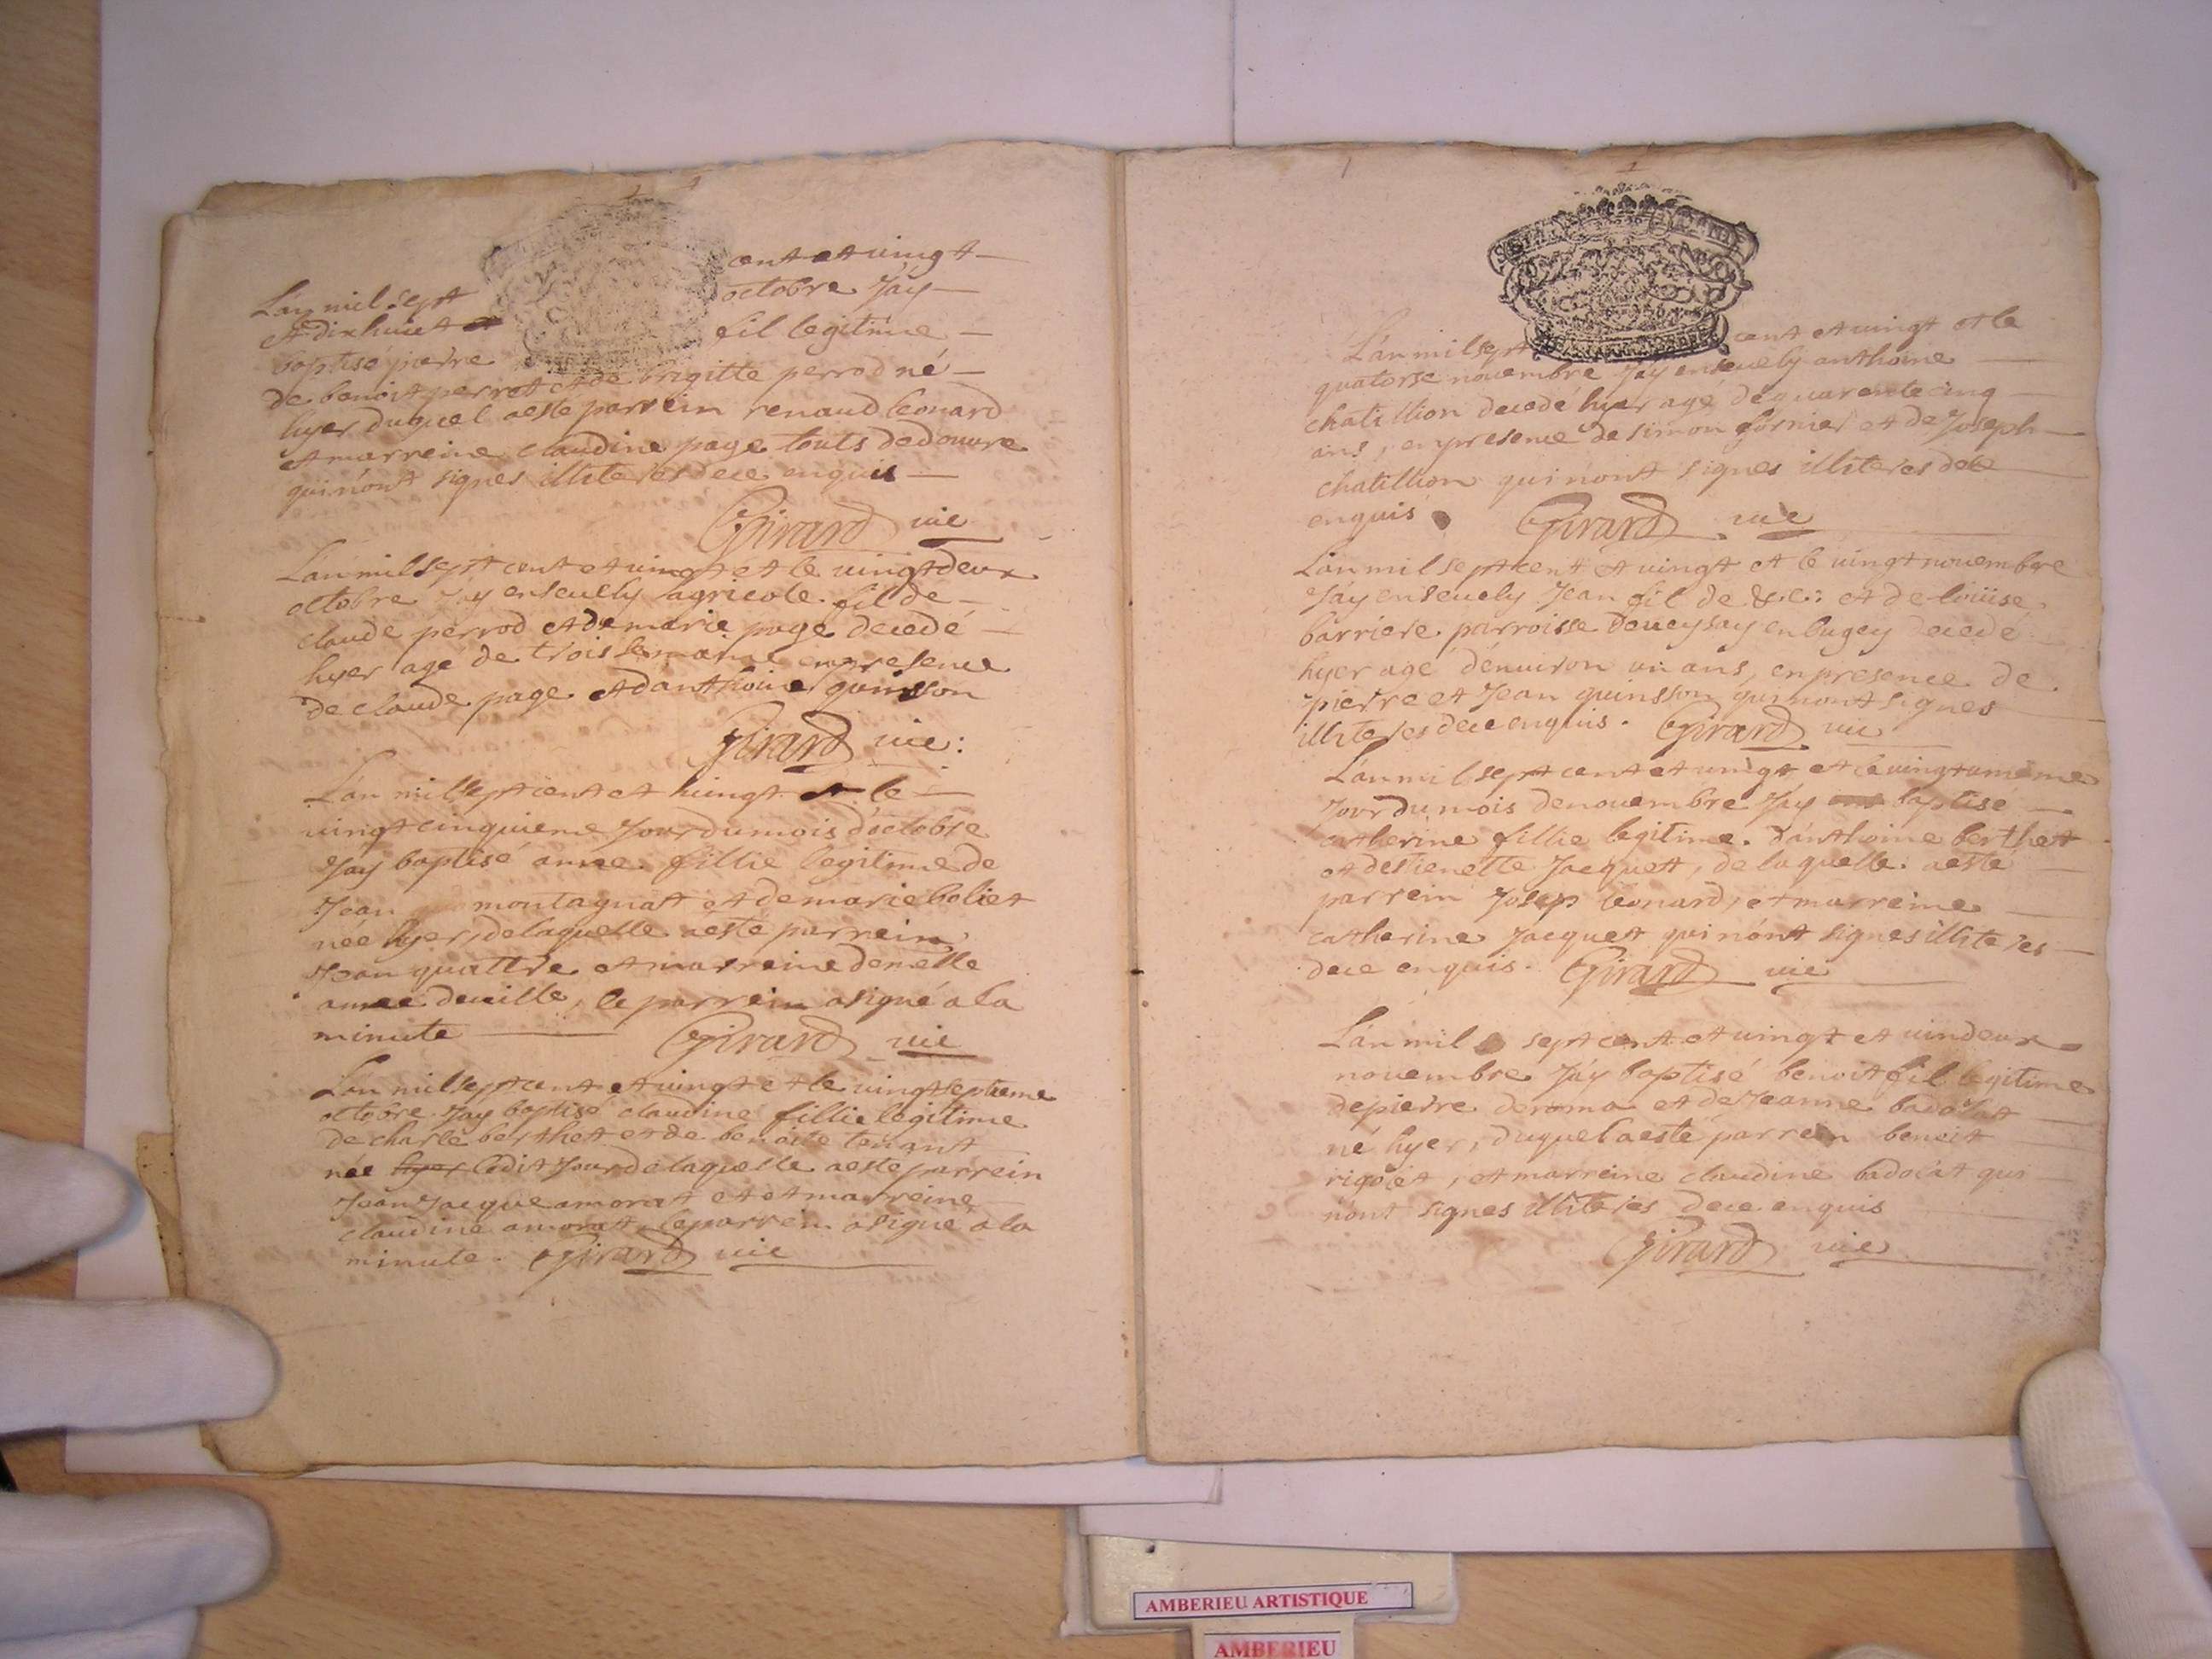 Lan mil sept cent et vingt
et dixhuict octobre Jáy
baptisé pierre fil legitime
de benoit perrot et de brigitte perrod né
hyer duquel aesté parrein renaud leonard
et marreine claudine page touts dedouvre
qui nónt signes illiteres dece enquis
Girard vic
Lán mil sept cent et vingt et le vingtdeux
octobre Jáy ensevely agricole fil de
claude perrod et de marie page decedé
hyer age de trois semaine en presence
de claude page et danthoine quinsson
Girard vic:
Lán mil sept cent et vingt et le
vingtcinquieme Jour du mois d'octobre
Jay baptisé anne fillie legitime de
Jean montagnat et de marie boliet
née hyer, delaquelle aésté parrein
Jean quattre et marreine demelle
anne deville, le parrein a signé a la
minute Girard vic
Lan mil sept cent et vingt et le vingtseptieme
octobre Jay baptisé claudine fillie legitime
de charle berthet et de benoite tenant
née hyer ledit Jour delaquelle aeste parrein
Jean Jacque amorat et et marreine
claudine amorat, le parrein a signé a la
minute. Girard vic
1
Lán mil sept cent et vingt et le
quatorse novembre Jáy ensevely anthoine
chatillion decedé hyer agé de quarentecinq
ans, en presence de simon fornier et de Joseph
chatillion qui nónt signes illiteres dece
enquis Girard vic
Lán mil sept cent et vingt et le vingt novembre
Jáy ensevely Jean fil de &c: et de loüise
barriere parroisse doucysay en bugey decedé
hyer agé dénviron un ans, en presence de
pierre et Jean quinsson qui nont signes
illiteres dece enquis. Girard vic
Lán mil sept cent et vingt et le vingtunieme
Jour du mois denovembre Jáy baptisé
catherine fillie legitime d'ánthoine berthet
et destienette Jacquet, de laquelle aesté
parrein Josep leonard, et marreine
catherine Jacquet qui nónt signes illiteres
dece enquis. Girard vic
Lán mil sept cent et vingt et vindeux
novembre Jáy baptisé benoit fil legitime
depierre deroma et de Jeanne badolat
né hyer, duquel aesté parrein benoit
rigolet, et marreine claudine badolat qui
nónt signes illiteres dece enquis
Girard vic
AMBERIEU ARTISTIQUE
AMBERIEU